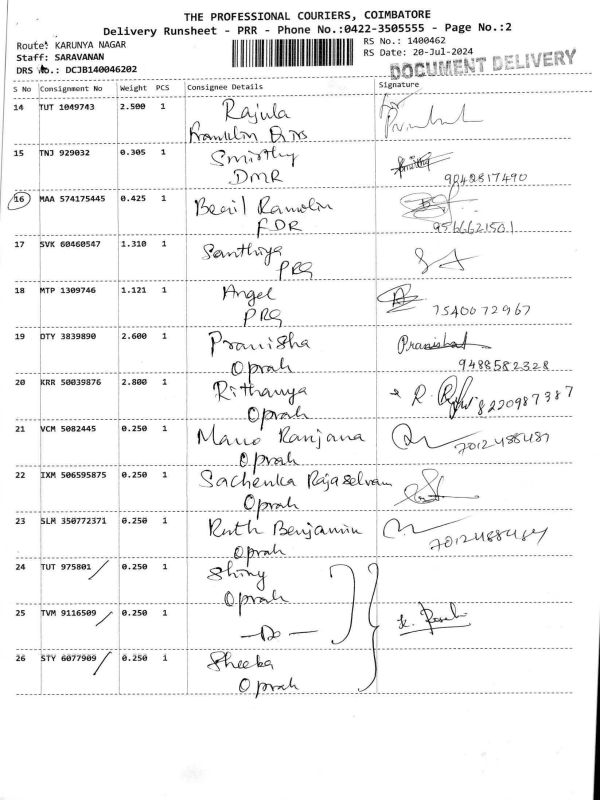 THE PROFESSIONAL COURIERS, COIMBATORE
Delivery Runsheet - PRR - Phone No.:0422-3505555 - Page No.:2
Route: KARUNYA NAGAR
RS No.: 1400462
Staff: SARAVANAN
RS Date: 20-Jul-2024
DRS No.: DCJB140046202
DOCUMENT DELIVERY
S No Consignment No Weight PCS Consignee Details Signature
14 TUT 1049743 2.500 1 Rajula
Franklin
15 TNJ 929032 0.305 1 Smirthy
DMR 9042817490
16 MAA 574175445 0.425 1 Ramolin
FDR 9566621501
17 SVK 60460547 1.310 1 Santhiya
PRG
18 MTP 1309746 1.121 1 Angel
PRG 7540072967
19 OTY 3839890 2.600 1 Pranisha
Oprah 9488582328
20 KRR 50039876 2.800 1 Rithanya R. 8220987387
Oprah
21 VCM 5082445 0.250 1 Mano Ranjana 7012488487
Oprah
22 IXM 506595875 0.250 1 Sachenka Rajaselvam
Oprah
23 SLM 350772371 0.250 1 Ruth Benjamin
Oprah 7012488487
24 TUT 975801 0.250 1 Shiny
Oprah
25 TVM 9116509 0.250 1
-Do-
26 STY 6077909 0.250 1 Sheeba
Oprah